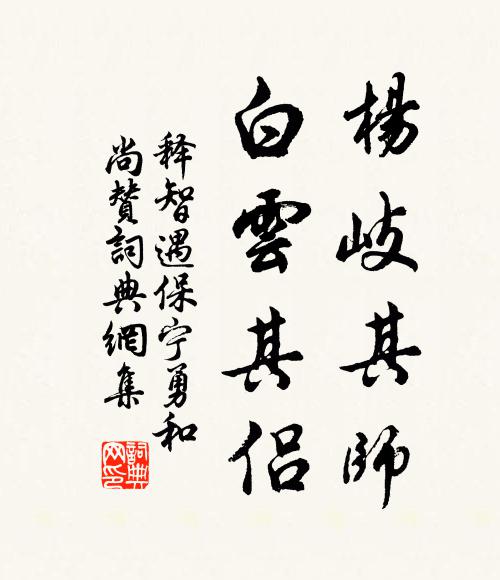 楊岐其師
白雲其侶
释智遇保宁勇和
尚贊詞典網集
詞典网印